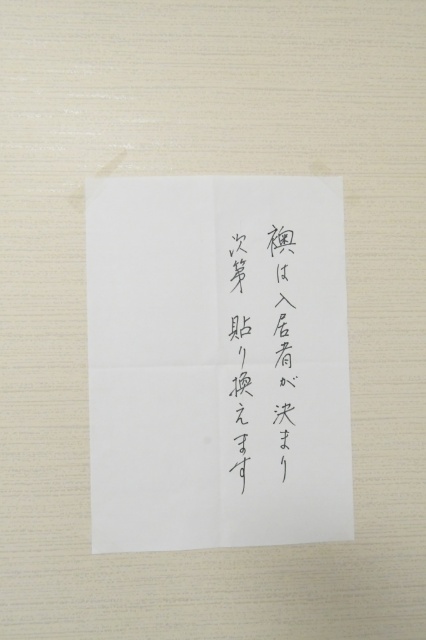 襖は入居者が決まり
次第 貼り換えます